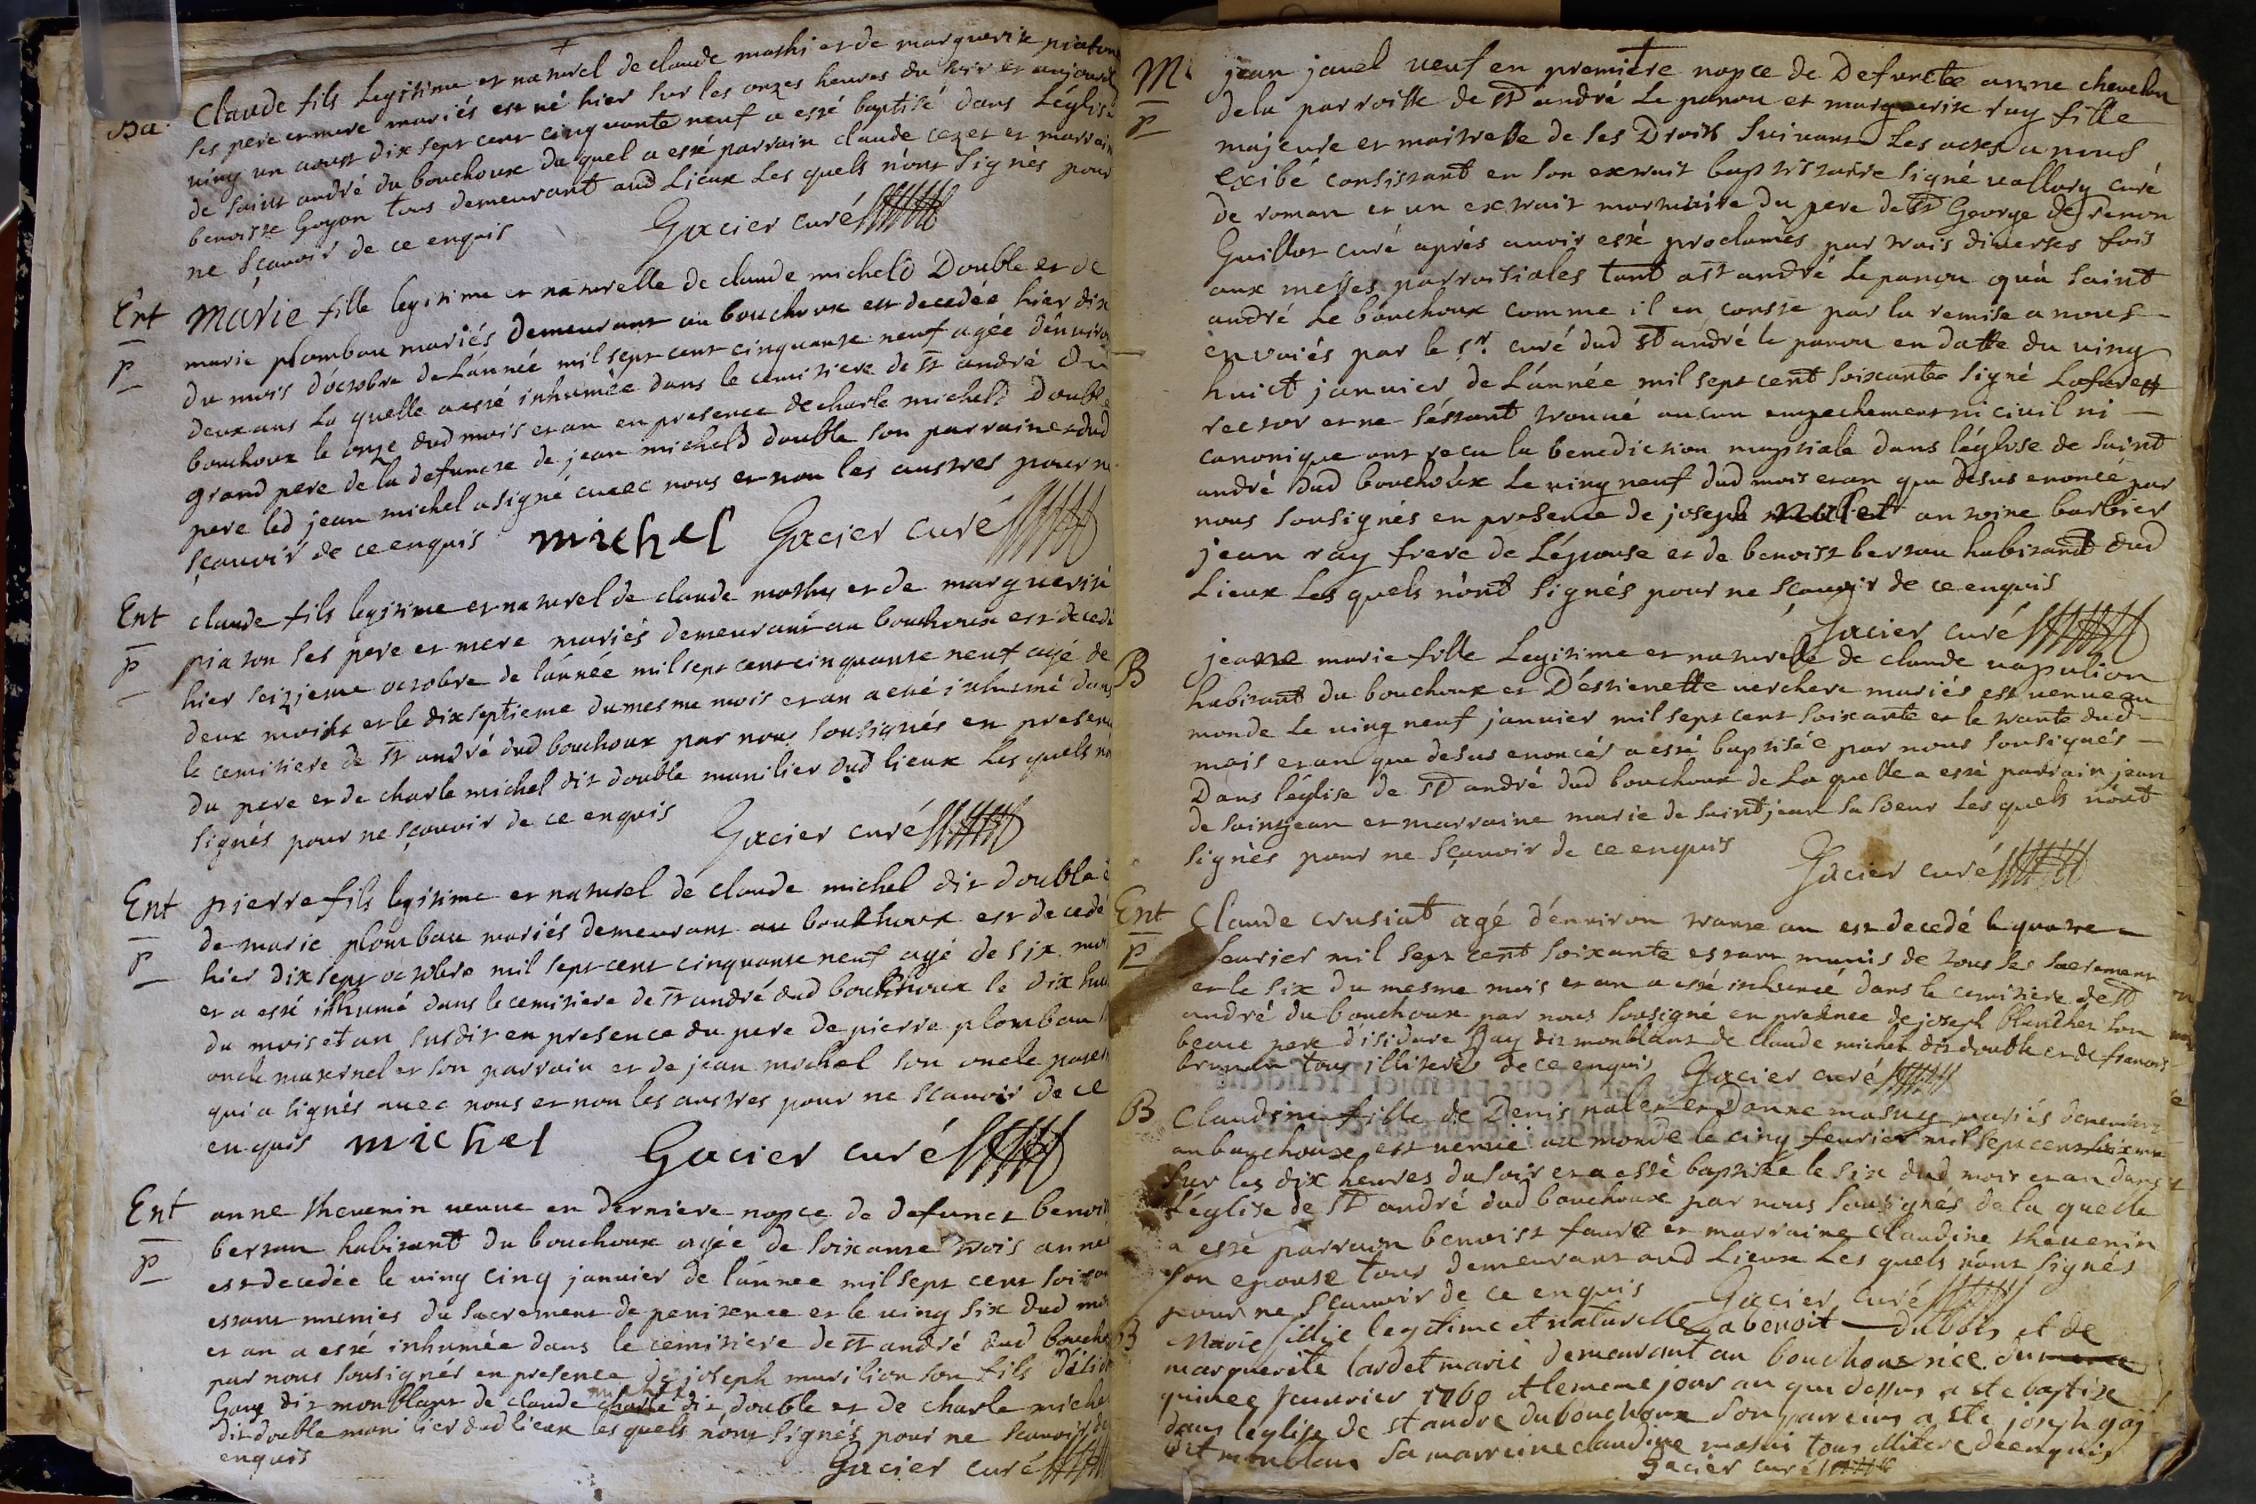 Ba
Claude fils Legitime et naturel de claude mathi et de marguerite piaton
ses pere et mere mariés est né hier sur les onzes heures du soir et aujourd
ving un aoust dix sept cent cinquante neuf a esté baptisé dans Léglise
de saint andré du bouchoux du quel a esté parrain claude cezet et marrain
benoitte Goyon tous demeurant aud Lieux Les quels n'ont signés pour
ne sçauoir de ce enquis
Gacier curé
Ent
p
Marie fille legitime et naturelle de claude micheld Double et de
marie plombau mariés demeurant au bouchoux est decedée hier dix
du mois d'octobre de L'année mil sept cent cinquante neuf agée d'enuiron
deux ans La quelle a esté inhumée dans le cemitiere de st andré du
bouchoux le onze dud mois et an en presence de charle micheld Double
grand pere de la defuncte de jean micheld double son parrain et dud
pere led jean michel a signé auec nous et non les austres pour ne
sçauoir de ce enquis
michel
Gacier curé
Ent
p
claude fils legitime et naturel de claude mathy et de marguerite
piaton ses pere et mere mariés demeurant au bouchoux est decedé
hier seizieme octobre de l'année mil sept cent cinquante neuf agé de
deux moiss et le dixseptieme du mesme mois et an a esté inhumé dans
le cemitiere de st andré dud bouchoux par nous sousignés en presence
du pere et de charle michel dit double manilier dud lieux Les quels n'o
signés pour ne sçauoir de ce enquis
Gacier curé
Ent
p
pierre fils legitime et naturel de claude michel dit double e
de marie plombau mariés demeurant au bouchoux est decedé
hier dix sept octobre mil sept cent cinquante neuf agé de six moi
et a esté inhumé dans le cemitiere de st andré dud bouchoux le dix hui
du mois et an susdit en presence du pere de pierre plombau
oncle maternel et son parrain et de jean michel son oncle patern
qui a signés auec nous et non les austres pour ne scauoir de ce
enquis
michel
Gacier curé
Ent
p
anne theuenin veuue en derniere nopce de defunct benoist
bertau habitant du bouchoux agée de soixante trois année
est decedée le ving cinq januier de l'année mil sept cent soixan
estant munies du sacrement de penitence et le ving six dud moi
et an a esté inhumée dans le cemitiere de st andré dud bouchou
par nous sousignés en presence de joseph marilion son fils d'isid
Gay dit monblant de claude michel dit double et de charle michel
dit double manilier dud lieux les quels n'ont signés pour ne scauoir de
enquis
Gacier curé
M
p
jean javel veuf en premiere nopce de Defuncte anne chevelon
dela parroisse de st andré Le panou et marguerite ray fille
majeure et maitresse de ses Droits suivant Les actes a nous
exibé consistant en son extrait baptistaire signé vallory curé
de roman et un extrait mortuaire du pere de st George de renon
Guillot curé aprés auoir esté proclamés par trois diuerses fois
aux messes parroisiales tant a st andré le panou qu'a saint
andré Le bouchoux comme il en conste par la remise a nous
envoiés par le sr. curé dud st andré le panou en datte du ving
huict januier de L'année mil sept cent soixante signé
rector et ne s'estant trouué aucun empechement ni civil ni
canonique ont recu la benediction nuptiale dans l'église de saint
andré dud bouchoux Le ving neuf dud mois et an que desus enoncée par
nous sousignés en presence de joseph nalet antoine barbier
jean ray frere de L'épouse et de benoist bertau habitant dud
Lieux Les quels n'ont signés pour ne sçauoir de ce enquis
Gacier curé
B
jeanne marie fille Legitime et naturelle de claude vapulion
habitant du bouchoux et D'estienette verchere mariés est venue au
monde Le ving neuf januier mil sept cent soixante et le trante dud
mois et an que desus enoncés a esté baptisée par nous sousignés
Dans l'église de st andré dud bouchoux de La quelle a esté parrain jean
de saintjean et marraine marie de saintjean sa soeur Les quels n'ont
signés pour ne sçauoir de ce enquis
Gacier curé
Ent
p
Claude crusiat agé d'enuiron trante an est decedé le quatre
feurier mil sept cent soixante estant munis de tous ses sacrement
et le six du mesme mois et an a esté inhumé dans le cemitiere de st
andré du bouchoux par nous sousigné en presence de joseph blanchet son
beau pere d'isidore Gay dit monblant de claude michel dit double et de francois
brunau tous illiteres de ce enquis
Gacier curé
B
Claudine fille de Denis nalet et Danne masuy mariés demeurant
au bouchoux est venue au monde le cinq feurier mil sept cent soixante
sur les dix heures du soir et a esté baptisée le six dud mois et an dans
l'église de st andré dud bouchoux par nous sousignés de la quelle
a esté parrain benoist faure et marraine Claudine theuenin
son epouse tous demeurant aud Lieux Les quels n'ont signés
pour ne scauoir de ce enquis
Gacier curé
B
Marie fillie legitime et naturelle a benoit dubois et de
marguerite lardet marié demeurant au bouchoux née du
quinze feuurier 1760 et le meme jour an que dessus a ete baptize
dans leglise de st andre du bouchoux son parrein a ete joseph gay
dit monblan sa marreine claudine masui tous illitere de enquis
Gacier curé